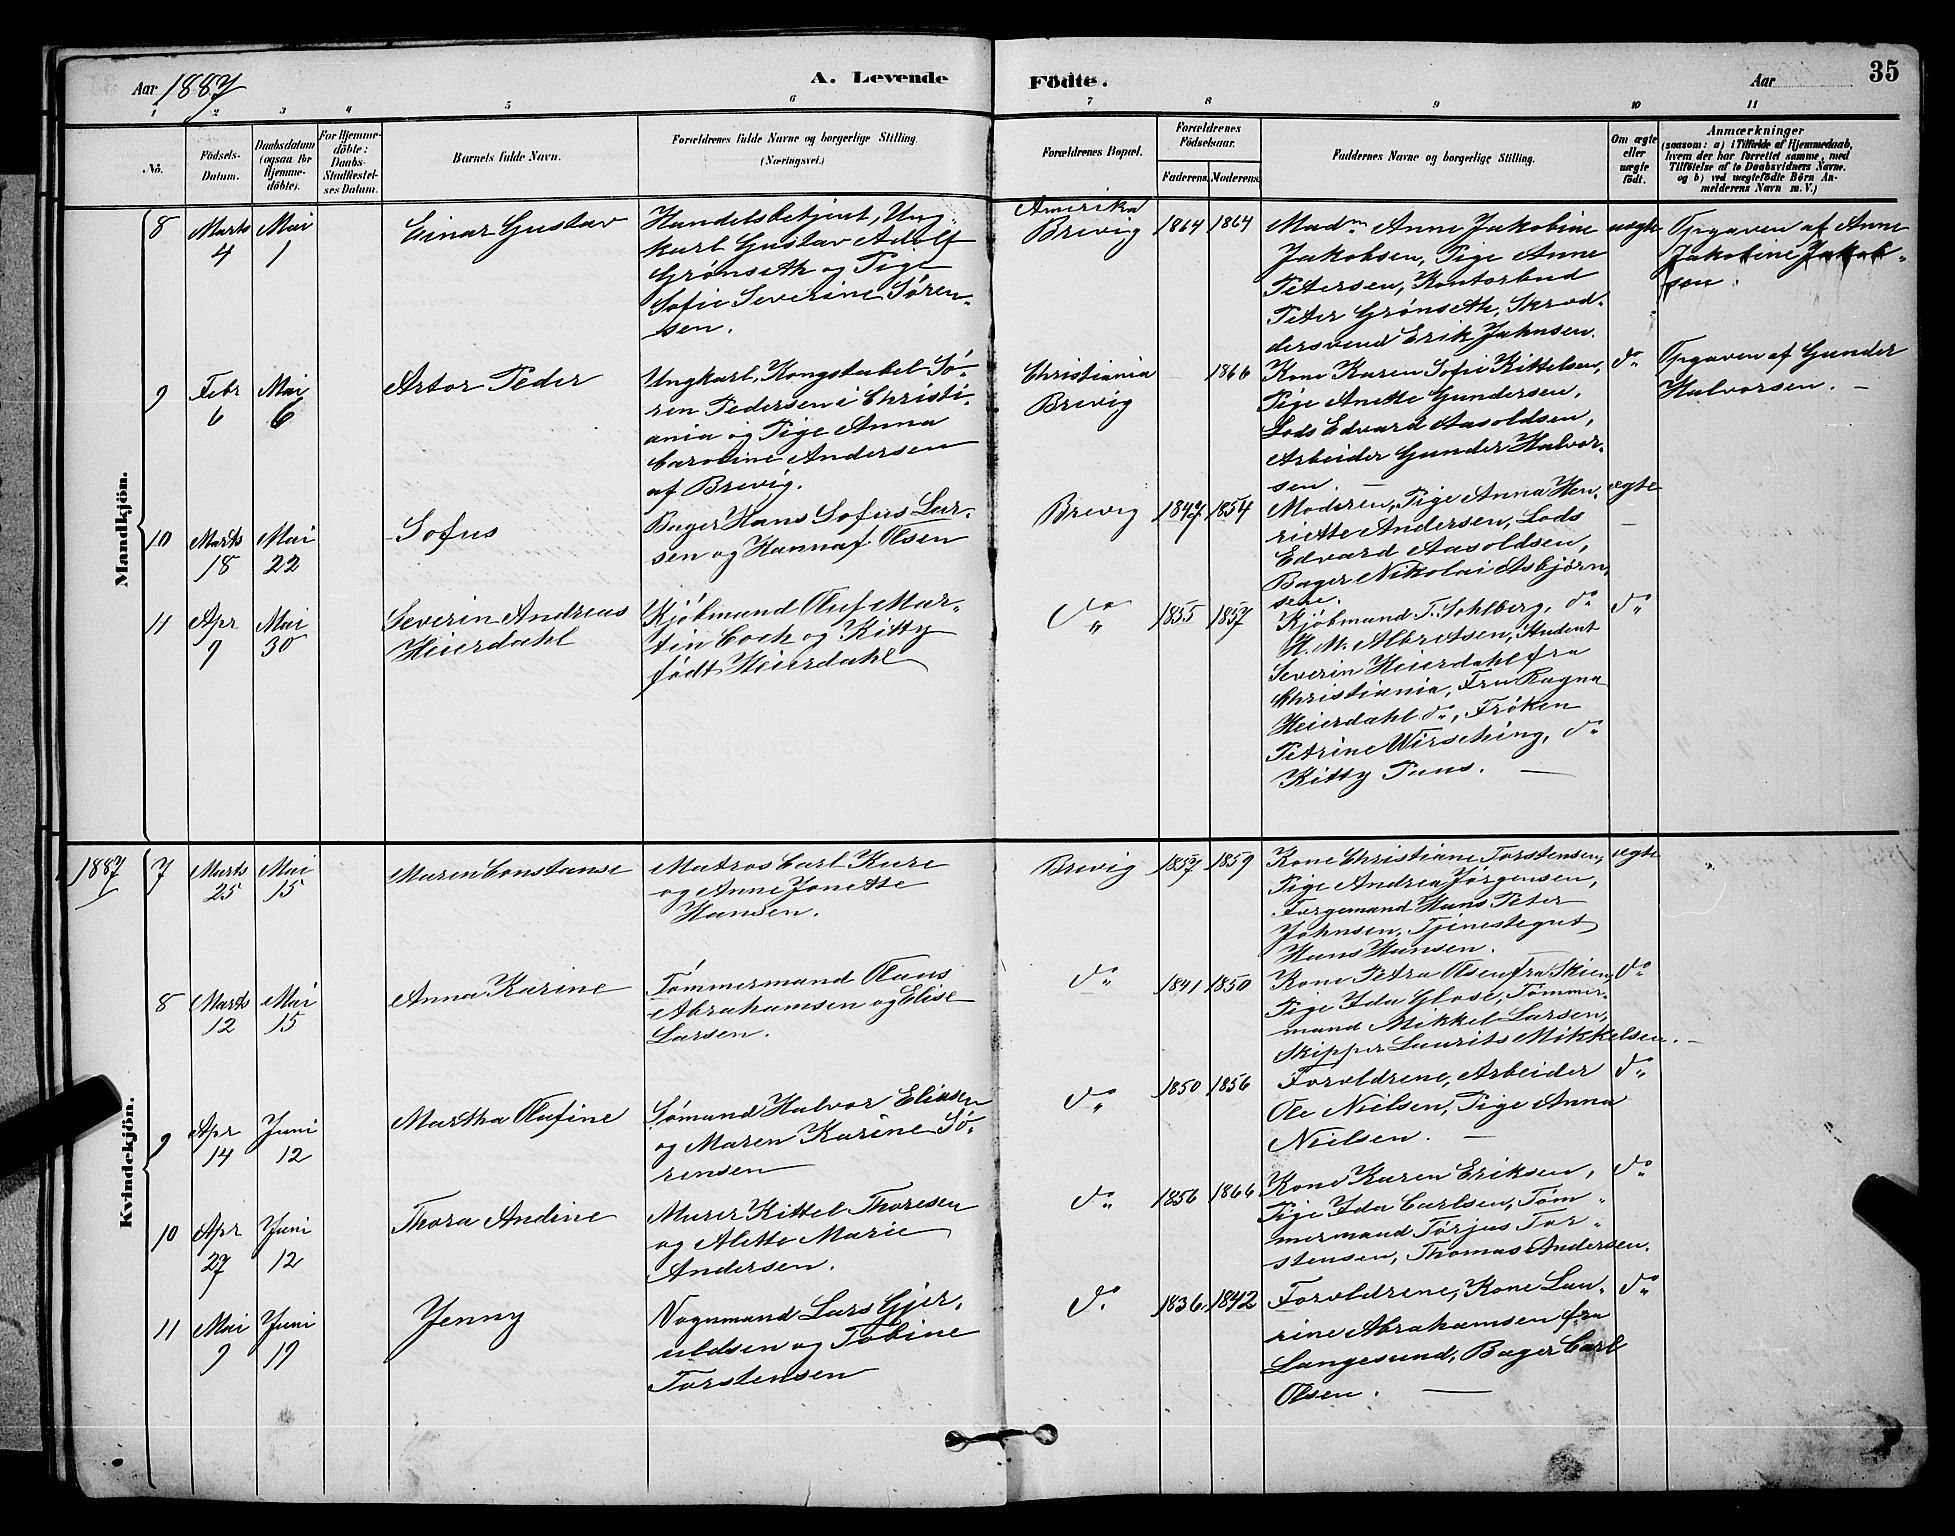 35
Aar 1887
A. Levende
Födte.
Aar
1 2 3 4 5 6 7 8 9 10 11
No.
Födsels-
Datum.
Daabsdatum
(ogsaa for
Hjemme-
döbte).
For Hjemme-
döbte:
Daabs-
Stadfæstel-
ses Datum.
Barnets fulde Navn.
Forældrenes fulde Navne og borgerlige Stilling
(Næringsvei.)
Forældrenes Bopæl.
Forældrenes
Födselsaar.
Faderens. Moderens.
Faddernes Navne og borgerlige Stilling.
Om ægte
eller
uægte
födt.
Anmærkninger
(saasom: a) i Tilfælde af Hjemmedaab,
hvem der har forrettet samme, med
Tilföielse af to Daabsvidners Navne.
og b) ved uægtefödte Börn An-
melderens Navn m. V.)
Mandkjön.
8
Marts
4
Mai
1
Einar Gustav
Handelsbetjent, Ung-
karl Gustav Adolf
Grønseth og Pige
Sofie Severine Søren-
sen.
Amerika
Brevig
1864 1864
Mad^m Anne Jakobine
Jakobsen, Pige Anne
Petersen, Kontorbud
Peter Grønseth, Skræd-
dersvend Erik Jahnsen.
uægte
Opgaven af Anne
Jakobine Jakob-
sen.
9
Febr
6
Mai
6
Artor Peder
Ungkarl, Kongstabel Sø-
ren Pedersen i Christi-
ania og Pige Anna
Caroline Andersen
af Brevig.
Christiania
Brevig
1866
Kone Karen Sofie Kittelsen,
Pige Anette Gundersen,
Lods Edvard Aasoldsen,
Arbeider Gunder Halvor-
sen. —
d°
Opgaven af Gunder
Halvorsen. —
10
Marts
18
Mai
22
Sofus
Bager Hans Sofus Lar-
sen og Hanna f. Olsen
Brevig
1847 1854
Moderen, Pige Anna Hen-
riette Andersen, Lods
Edvard Aasoldsen,
Bager Nikolai Asbjørn-
sen.
ægte
—
11
Apr
9
Mai
30
Severin Andreas
Heierdahl
Kjøbmand Oluf Mar-
tin Coch og Kitty
født Heierdahl
d°
1855 1857
Kjøbmand T. Sohlberg, d°
H. M. Albretsen, Student
Severin Heierdahl fra
Christiania, Fru Ragna
Heierdahl d°, Frøken
Petrine Wirsching, d°
Kitty Paus. —
d°
Kvindekjön.
1887
7
Marts
25
Mai
15
Maren Constanse
Matros Carl Kure
og Anne Jonette
Hansen.
Brevig
1857 1859
Kone Christiane Torstensen,
Pige Andrea Jørgensen,
Færgemand Hans Peter
Johnsen, Tjenestegut
Hans Hansen.
ægte
8
Marts
12
Mai
15
Anna Karine
Tømmermand Olaus
Abrahamsen og Elise
Larsen.
d°
1841 1850
Kone Petra Olsen fra Skien,
Pige Ida Glose, Tømmer-
mand Mikkel Larsen,
Skipper Laurits Mikkelsen. —
d°
9
Apr
14
Juni
12
Martha Olufine
Sømand Halvor Eliasen
og Maren Karine Sø-
rensen
d°
1850 1856
Forældrene, Arbeider
Ole Nielsen, Pige Anna
Nielsen. —
d°
10
Apr
27
Juni
12
Thora Andine
Murer Kittel Thoresen
og Alette Marie
Andersen.
d°
1856 1866
Kone Karen Eriksen,
Pige Ida Carlsen, Tøm-
mermand Torjus Tor-
stensen, Thomas Andersen.
d°
11
Mai
9
Juni
19
Jenny
Vognmand Lars Gjer-
uldsen og Tobine
Torstensen
d°
1836 1842
Forældrene, Kone Lau-
rine Abrahamsen fra
Langesund, Bager Carl
Olsen. —
d°